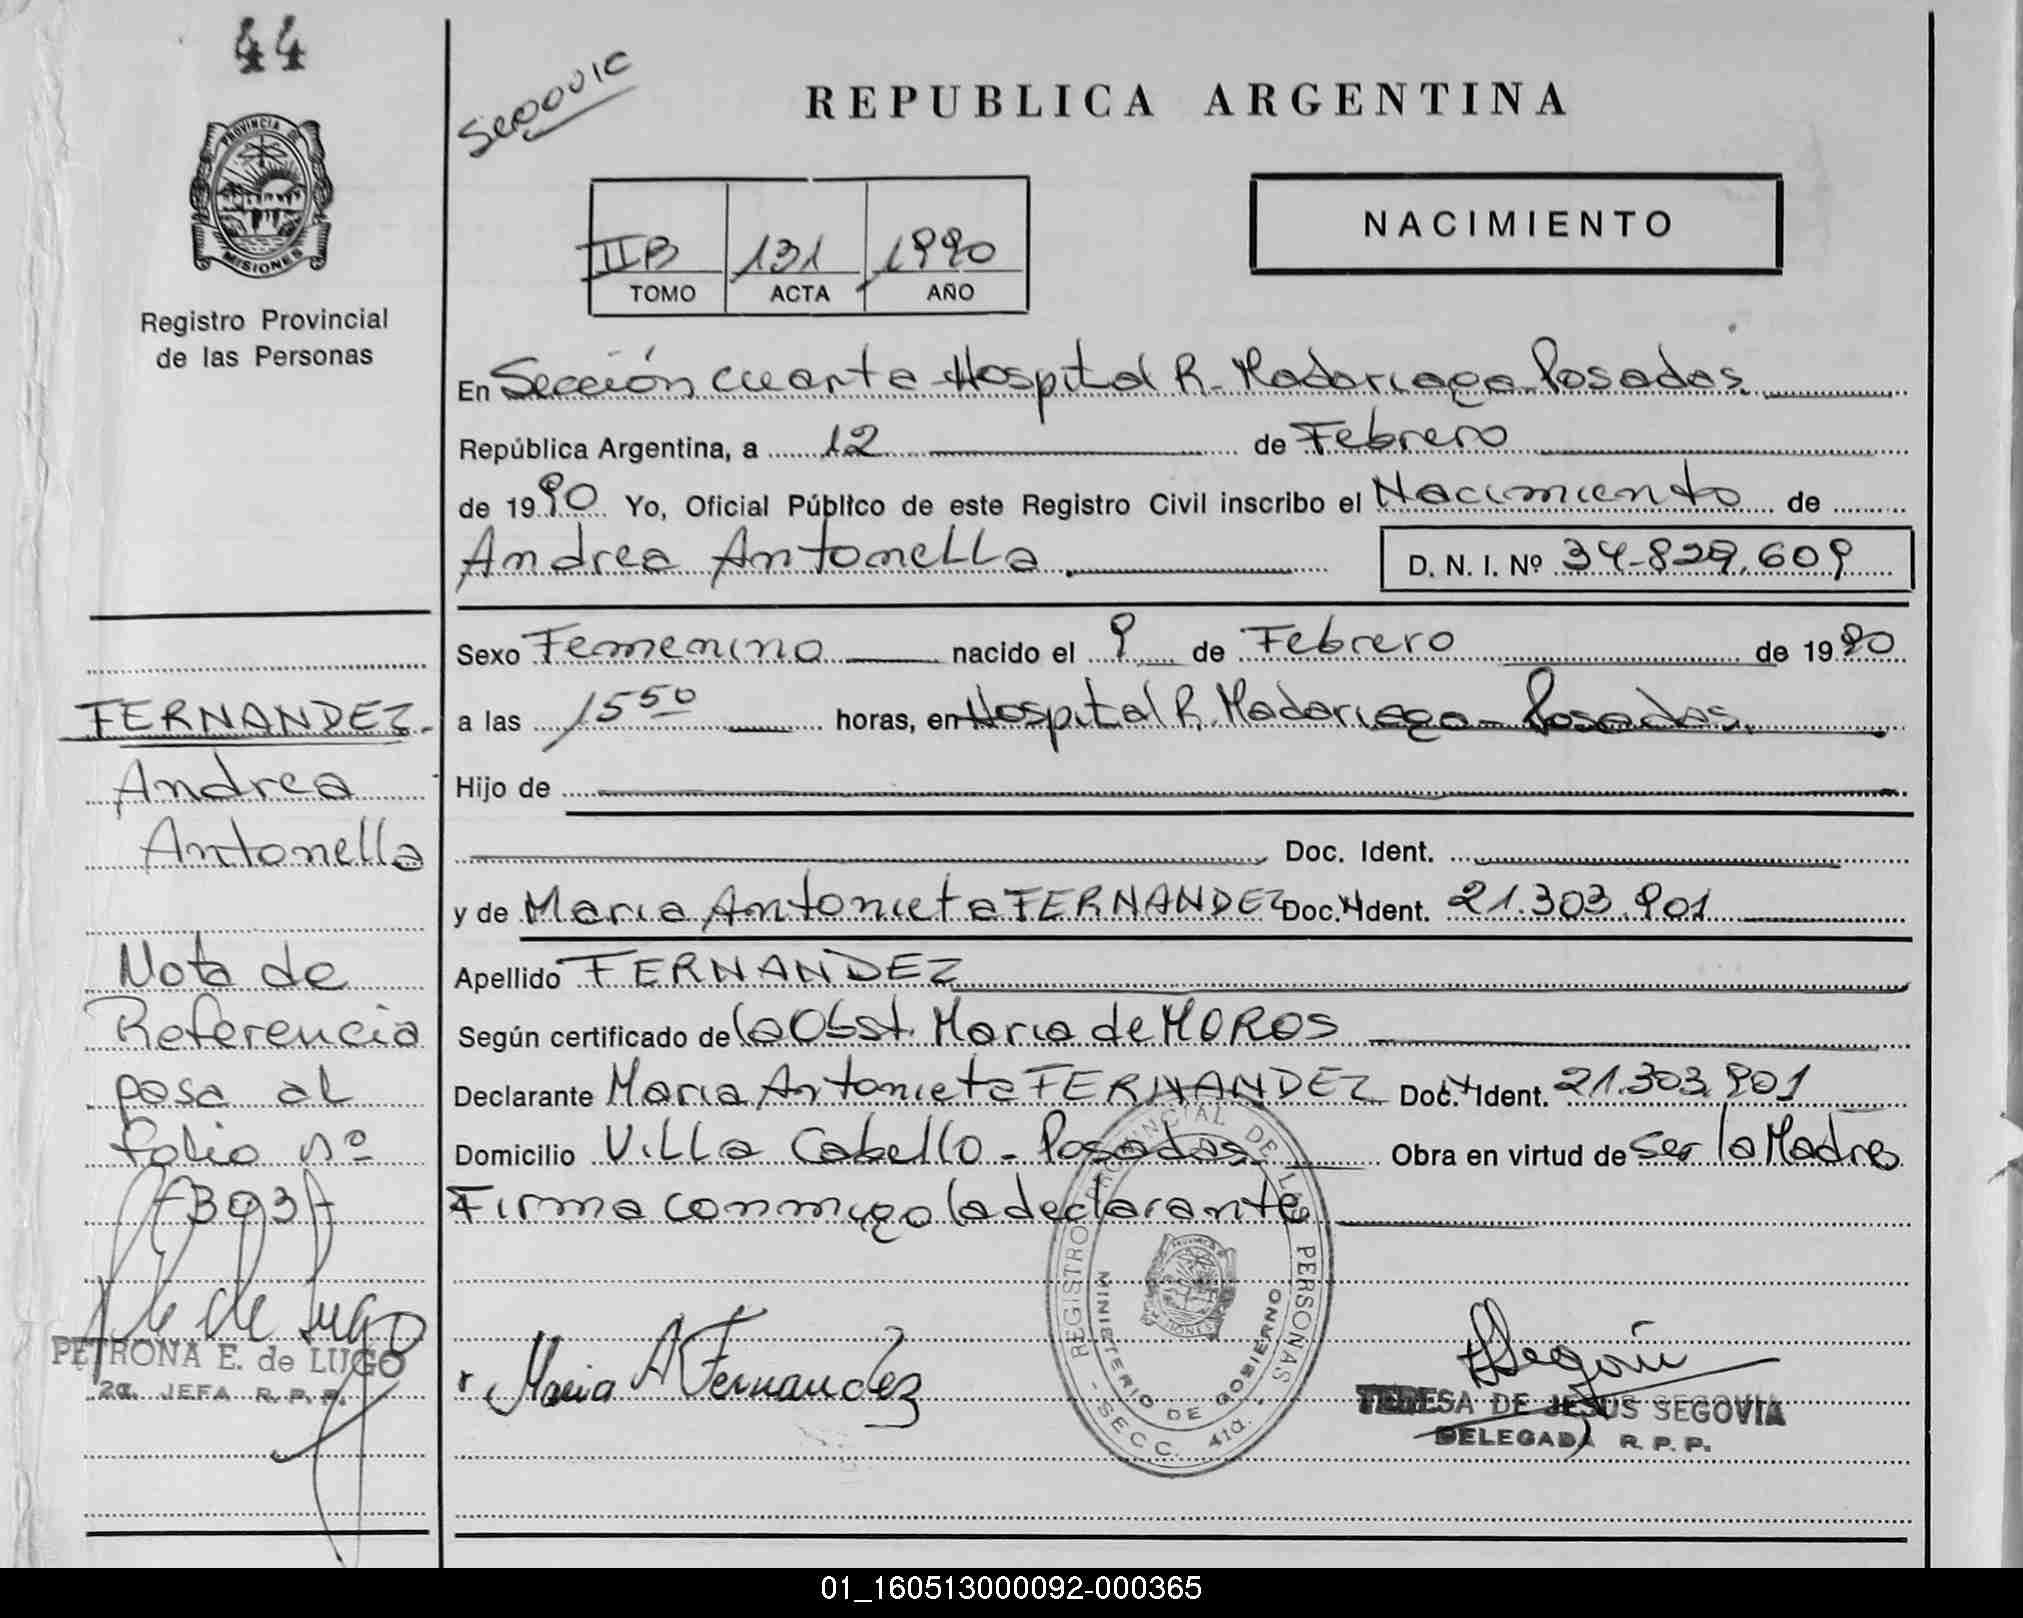 44
PROVINCIA DE
MISIONES
Registro Provincial
de las Personas
FERNANDEZ.
Andrea
Antonella
Nota de
Referencia
pasa al
folio nº
393
PETRONA E. de LUGO
2a. JEFA R.P.P.
REPUBLICA ARGENTINA
IIB 131 1990
TOMO ACTA AÑO
NACIMIENTO
En Sección cuarta Hospital R. Madariaga Posadas
República Argentina, a 12 de Febrero
de 1990 Yo, Oficial Público de este Registro Civil inscribo el Nacimiento de
Andrea Antonella D. N. I. Nº 34.829.609
Sexo Femenino nacido el 9 de Febrero de 1990
a las 15 50 horas, en Hospital R. Madariaga - Posadas.
Hijo de
Doc. Ident.
y de Maria Antonieta FERNANDEZ Doc. Ident. 21.303.901
Apellido FERNANDEZ
Según certificado de la Obst. Maria de MOROS
Declarante Maria Antonieta FERNANDEZ Doc. Ident. 21.303.901
Domicilio Villa Cabello - Posadas Obra en virtud de ser la Madre
Firma conmigo la declarante
REGISTRO PROVINCIAL DE LAS PERSONAS
MINISTERIO DE GOBIERNO
- SECC. 4ta. -
Maria A Fernandez
TERESA DE JESUS SEGOVIA
DELEGADA R.P.P.
01_160513000092-000365